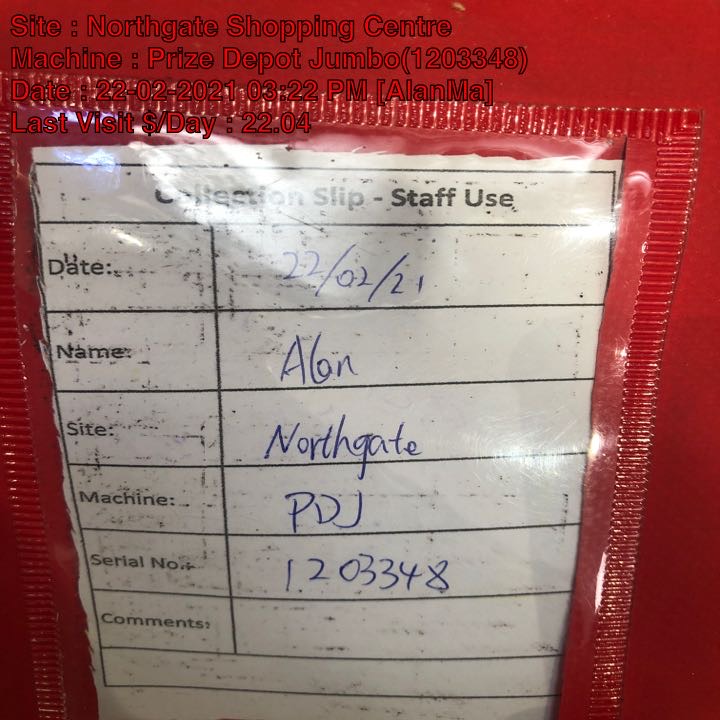 Site : Northgate Shopping Centre
Machine : Prize Depot Jumbo(1203348)
Date : 22-02-2021 03:22 PM [AlanMa]
Last Visit $/Day : 22.04
Collection Slip - Staff Use
Date: 22/02/21
Name: Alan
Site: Northgate
Machine: PDJ
Serial No.: 1203348
Comments: